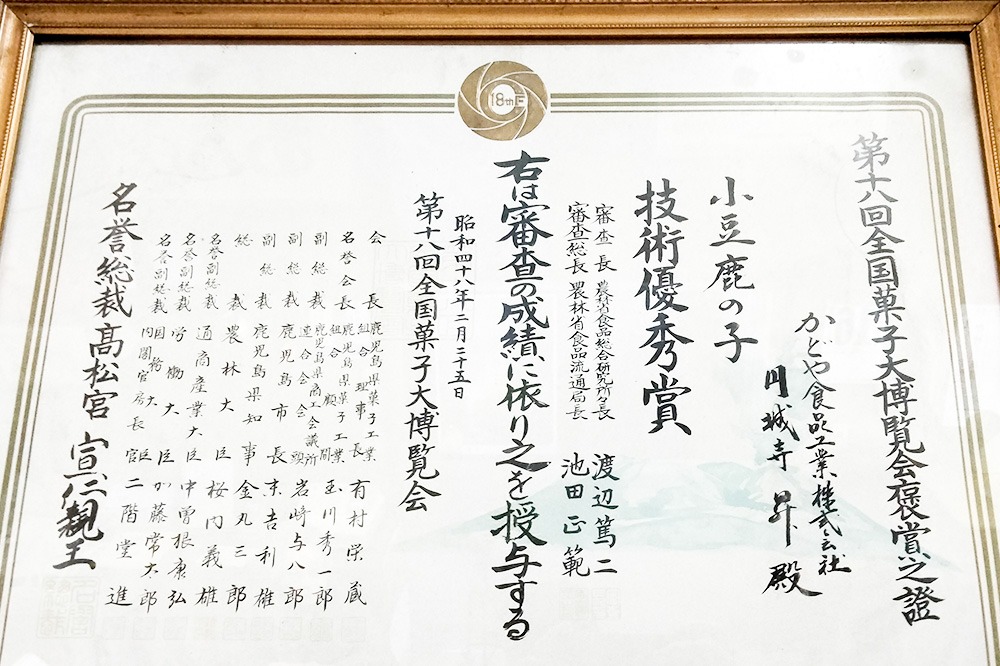 18th E
第十八回全国菓子大博覧会褒賞之證
かどや食品工業株式会社
円城寺 昇 殿
小豆鹿の子
技術優秀賞
審査長 農林省食品総合研究所長 渡辺篤二
審査総長 農林省食品流通局長 池田正範
右は審査の成績に依り之を授与する
昭和四十八年二月二十五日
第十八回全国菓子大博覧会
会長 鹿児島県菓子工業組合理事長 有村栄蔵
名誉会長 鹿児島県菓子工業組合顧問 玉川秀一郎
副総裁 鹿児島県商工会議所連合会会頭 岩崎与八郎
副総裁 鹿児島市長 末吉利雄
総裁 鹿児島県知事 金丸三郎
名誉副総裁 農林大臣 桜内義雄
名誉副総裁 通商産業大臣 中曽根康弘
名誉副総裁 労働大臣 加藤常太郎
国務大臣 内閣官房長官 二階堂進
名誉総裁高松宮 宣仁親王